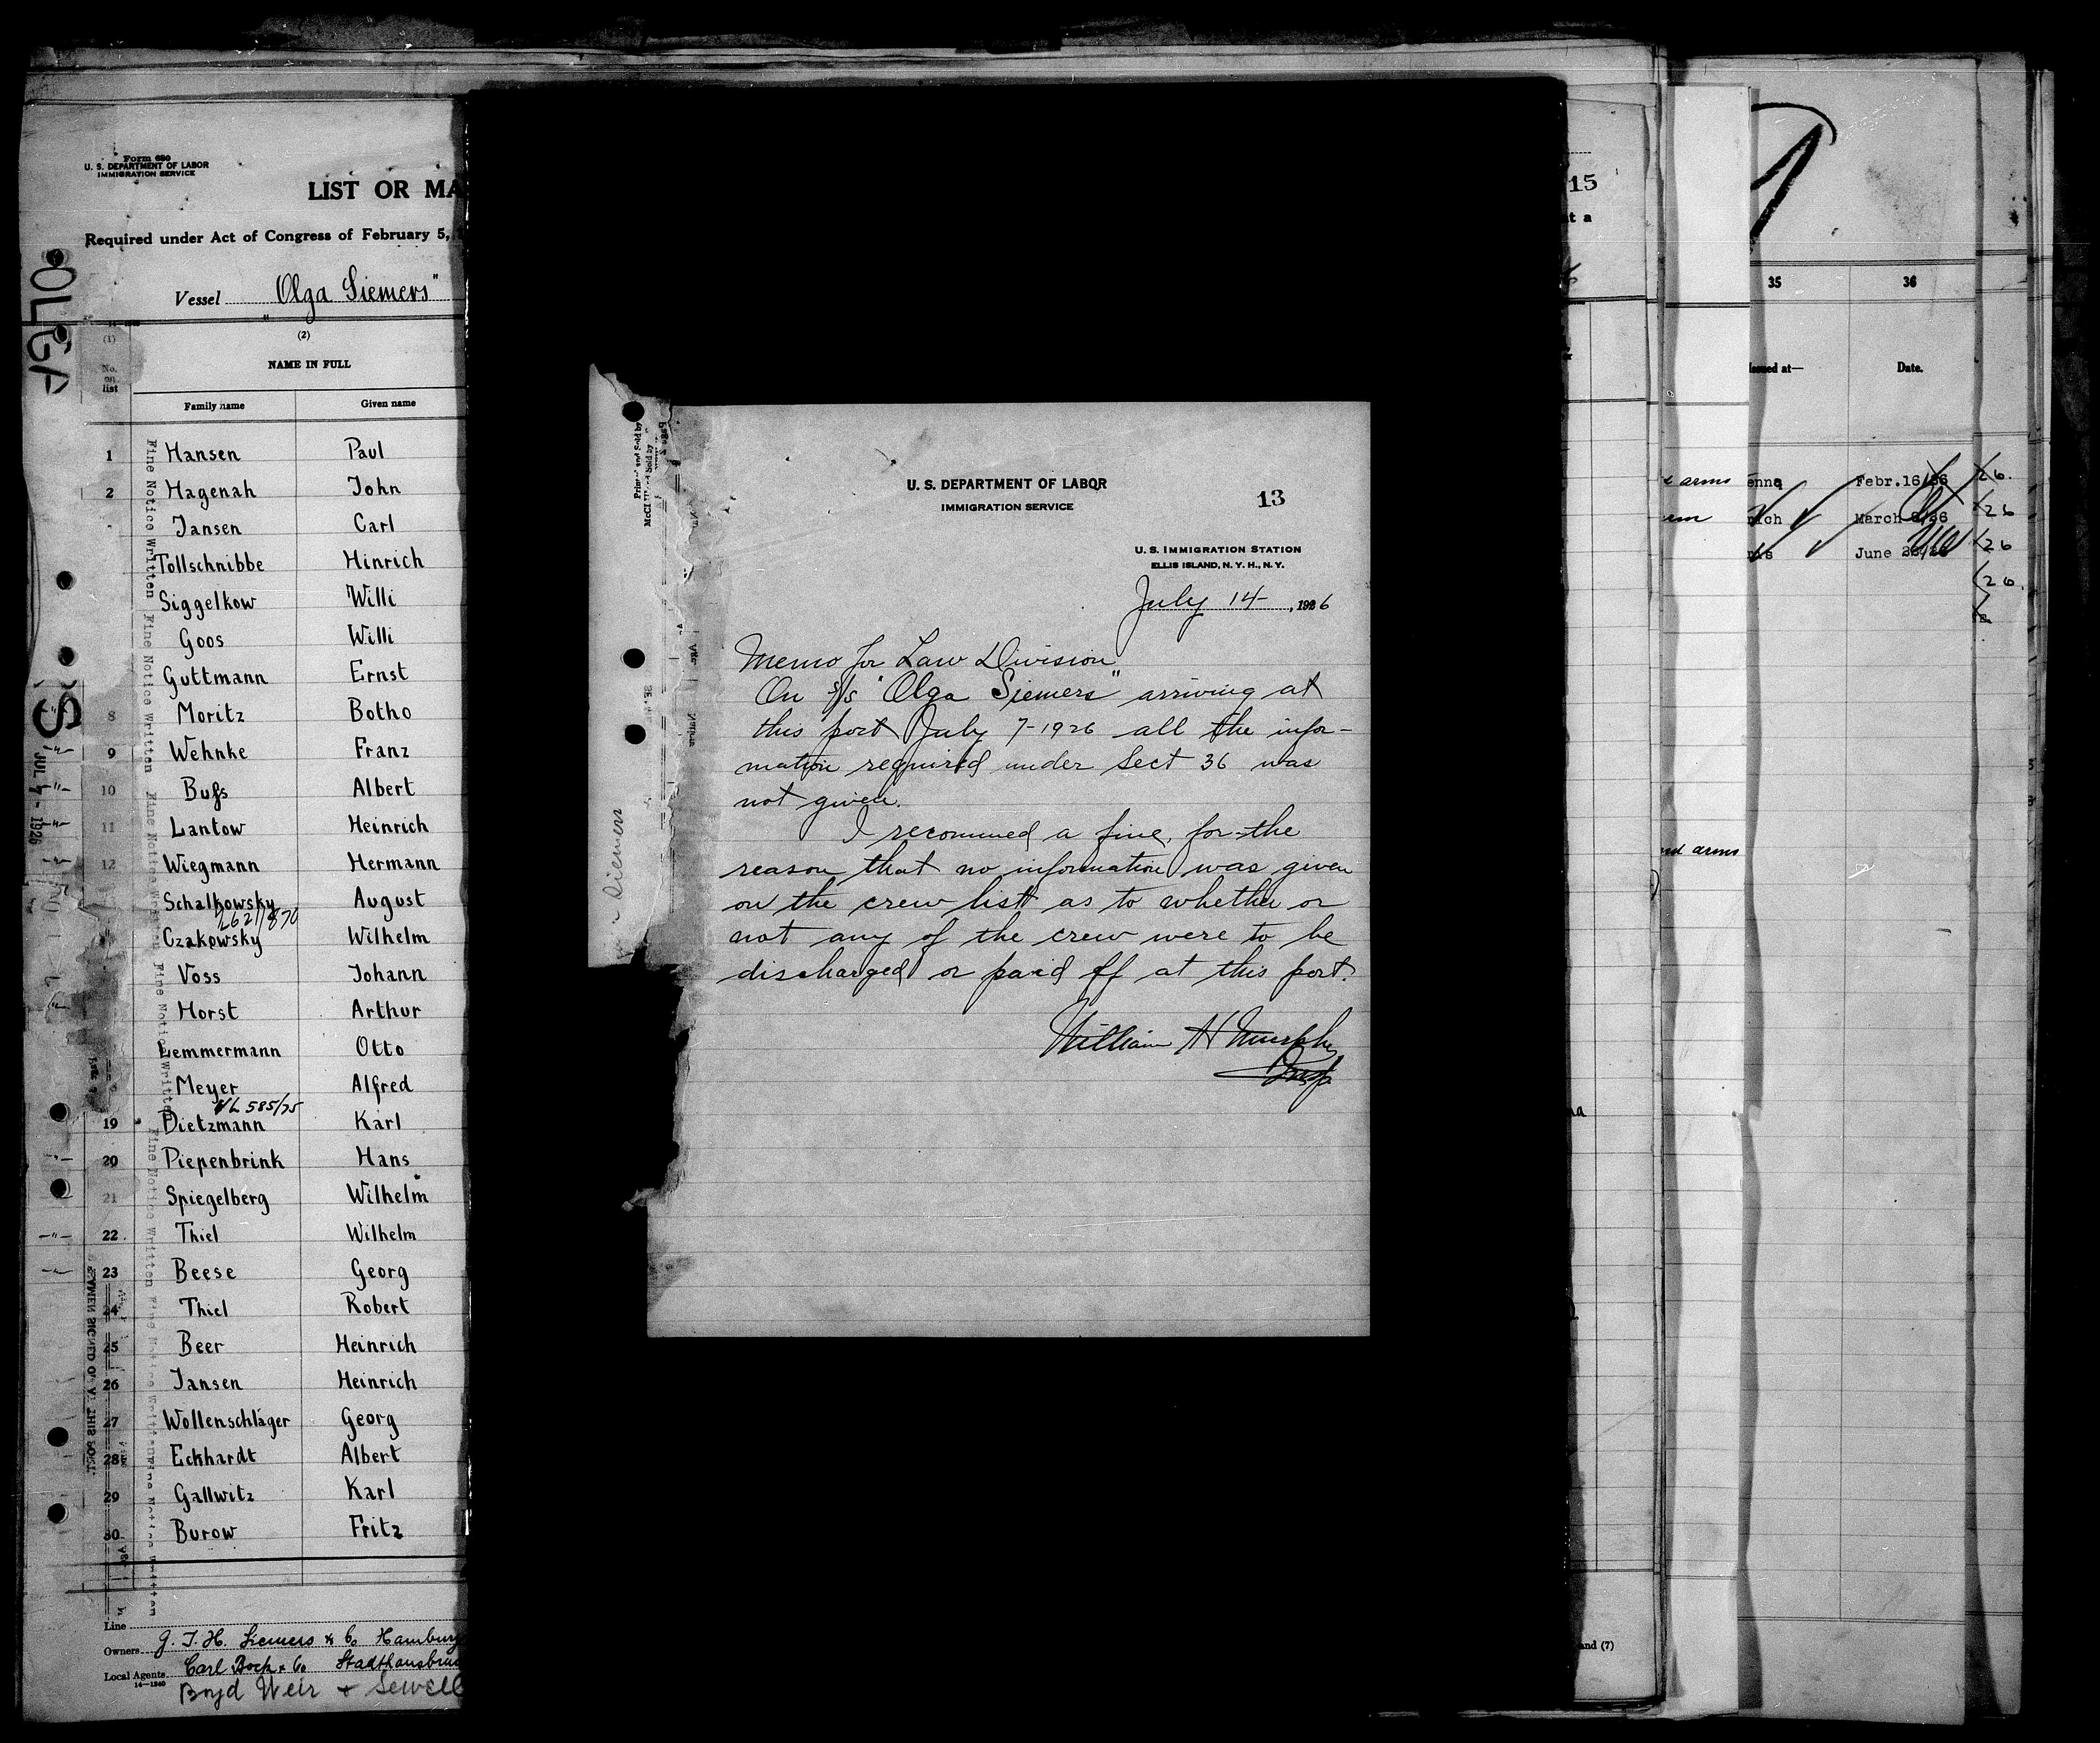 Form 680
U. S. DEPARTMENT OF LABOR
IMMIGRATION SERVICE
LIST OR MA
Required under Act of Congress of February 5,
Vessel "Olga Siemers"
(1)
(2)
No. on list
NAME IN FULL
Family name Given name
1 Hansen Paul
2 Hagenah John
Jansen Carl
Tollschnibbe Hinrich
Siggelkow Willi
Goos Willi
Guttmann Ernst
8 Moritz Botho
9 Wehnke Franz
10 Buſs Albert
11 Lantow Heinrich
12 Wiegmann Hermann
Schalkowsky August
Czakowsky Wilhelm
Voss Johann
Horst Arthur
Lemmermann Otto
Meyer Alfred
19 Dietzmann Karl
20 Piepenbrink Hans
21 Spiegelberg Wilhelm
22 Thiel Wilhelm
23 Beese Georg
24 Thiel Robert
25 Beer Heinrich
26 Jansen Heinrich
27 Wollenschläger Georg
28 Eckhardt Albert
29 Gallwitz Karl
30 Burow Fritz
Line
Owners G. J. H. Siemers & Co Hamburg
Local Agents Carl Bock & Co
14-1240
Boyd Weir & Sewell
Fine Notice Written Fine Notice Written Fine Notice Written Fine Notice Written
JUL 7 - 1926
U. S. DEPARTMENT OF LABOR
IMMIGRATION SERVICE
13
U. S. IMMIGRATION STATION
ELLIS ISLAND, N. Y. H., N. Y.
July 14-, 1926
Memo for Law Division
On s/s "Olga Siemers" arriving at
this port July 7-1926 all the infor-
mation required under Sect 36 was
not given.
I recommed a fine, for the
reason that no information was given
on the crew list as to whether or
not any of the crew were to be
discharged or paid off at this port.
William H Murphy
Insp
Siemers
15
t a
and (7)
35 36
Issued at— Date.
arms enna Febr.16/26
March
June
26
26
26
26
and arms